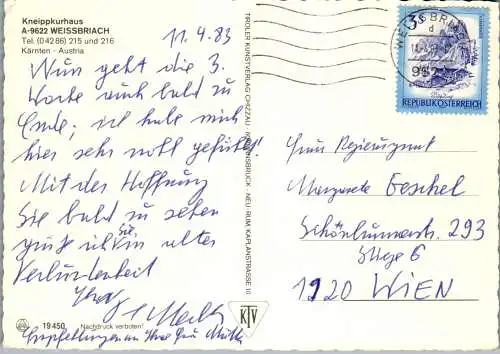 Kneippkurhaus
A-9622 WEISSBRIACH
Tel. (0 42 86) 215 und 216
Kärnten - Austria
11.4.83
Nun geht die 3.
Woche auch bald zu
Ende; ich habe mich
hier sehr wohl gefühlt!
Mit der Hoffnung
Sie bald zu sehen
grüßt Sie in alter
Verbundenheit
Ihre
Empfehlungen an Ihre Frau Mutter
19 450 Nachdruck verboten!
TIROLER KUNSTVERLAG CHIZZALI INNSBRUCK - NEU-RUM KAPLANSTRASSE
KTV
WEISSBRIACH
3S
REPUBLIK ÖSTERREICH
Frau Regierungsrat
Margarete
293
Stiege 6
1120 WIEN